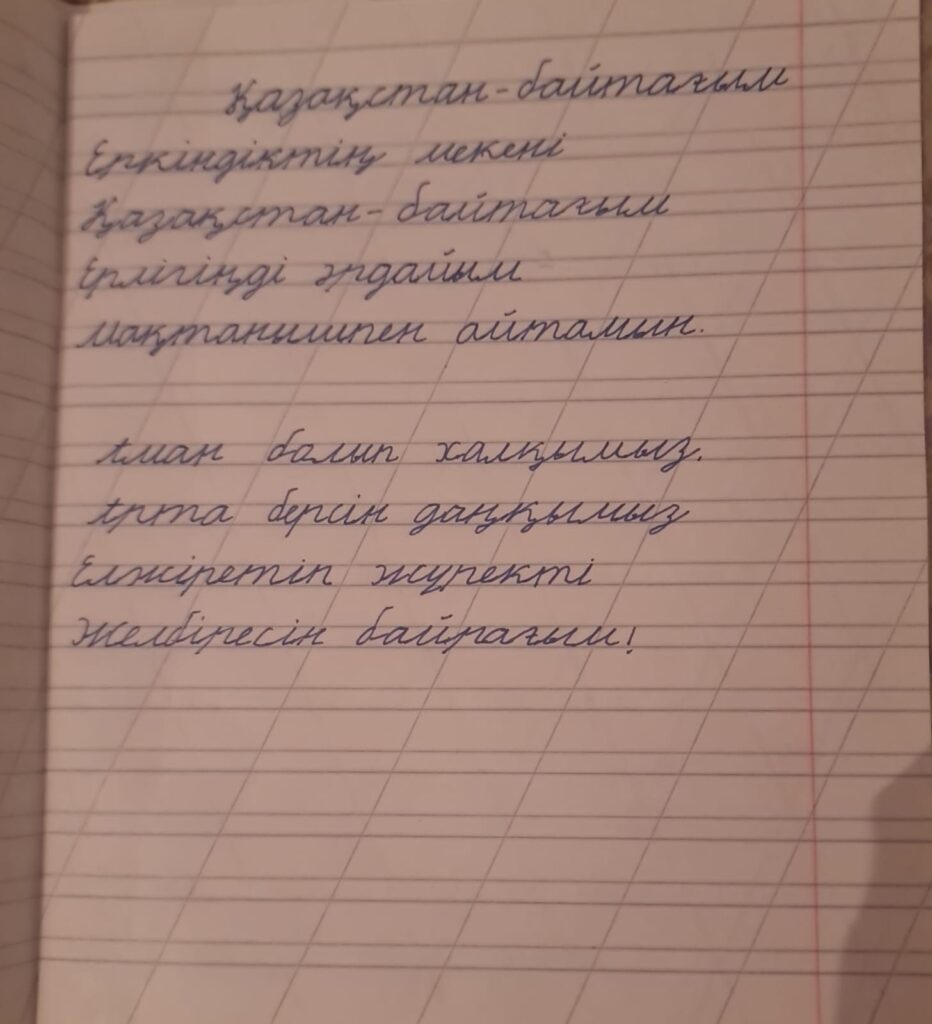 Қазақстан-байтағым
Еркіндіктің мекені
Қазақстан-байтағым
Ерлігіңді әрдайым
мақтанышпен айтамын.
Аман болып халқымыз.
Арта берсін даңқымыз
Елжіретіп жүректі
Желбіресін байрағым!